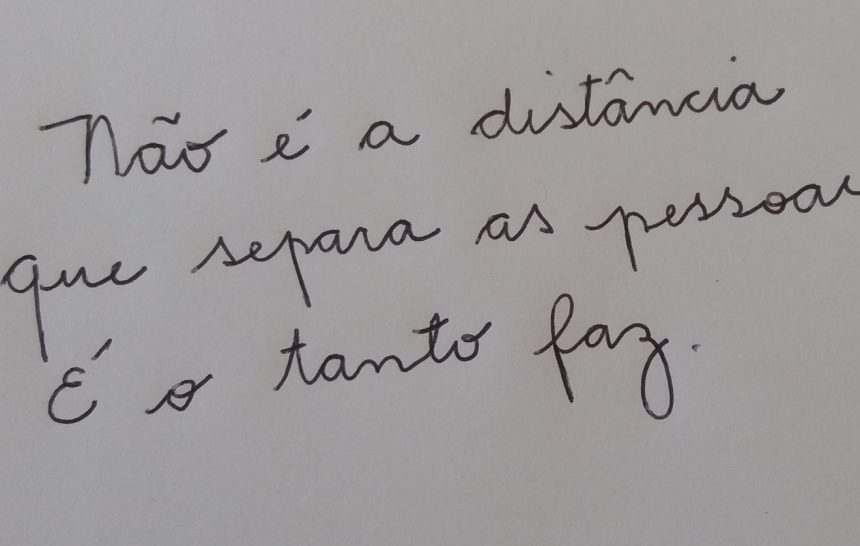 Não é a distância
que separa as pessoas
É o tanto faz.